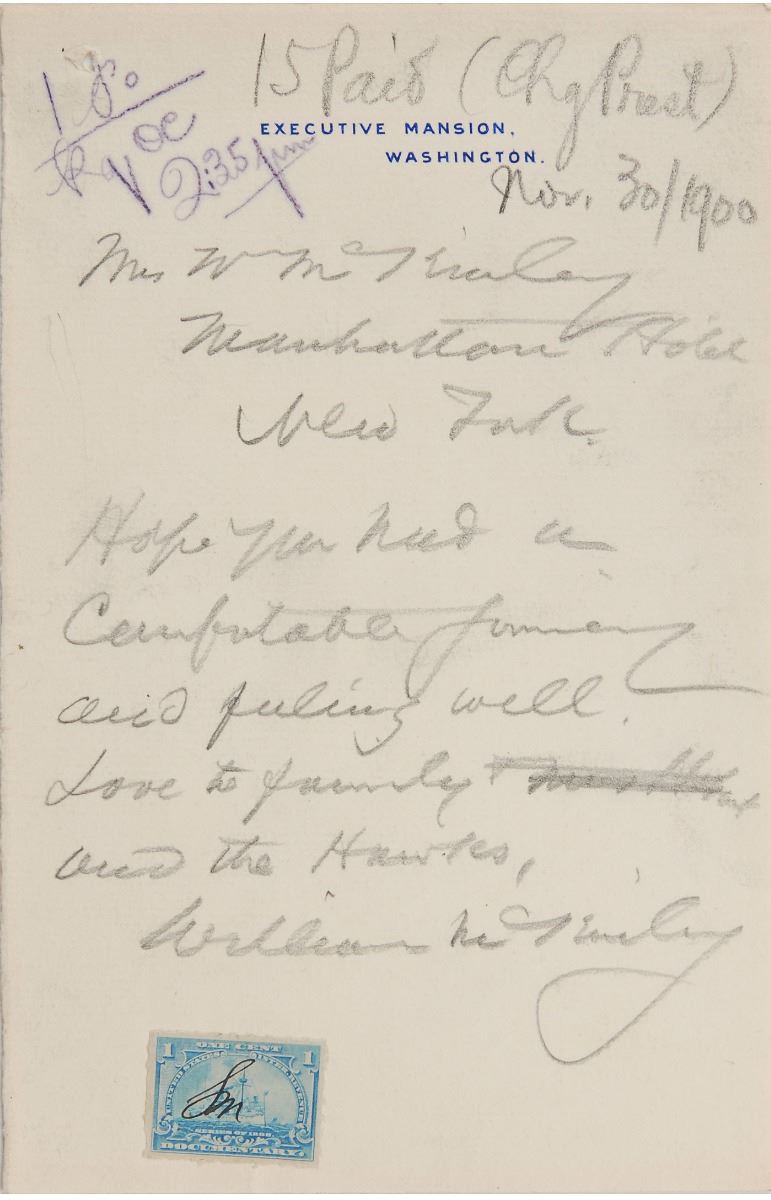 15 Paid (Chg Prest)
EXECUTIVE MANSION,
WASHINGTON.
2:35 pm
Nov. 30/1900
Mrs W McKinley
Manhattan Hotel
New York.
Hope you had a
Comfortable journey
and feeling well.
Love to family
and the Hawks,
William McKinley
1 ONE CENT 1
UNITED STATES INTER. REVENUE
SERIES OF 1898
DOCUMENTARY.